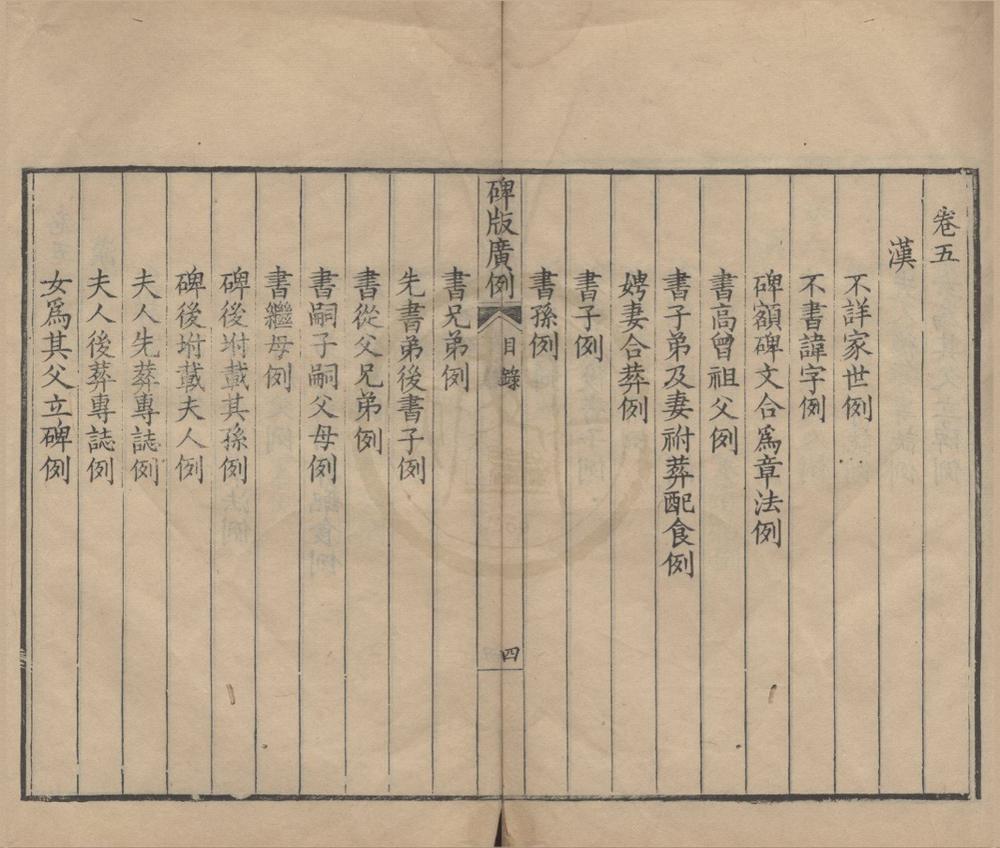 卷五
漢
不詳家世例
不書諱字例
碑額碑文合爲章法例
書高曾祖父例
書子弟及妻祔葬配食例
娉妻合葬例
書子例
書孫例
碑版廣例 目錄 四
書兄弟例
先書弟後書子例
書從父兄弟例
書嗣子嗣父母例
書繼母例
碑後坿載其孫例
碑後坿載夫人例
夫人先葬專誌例
夫人後葬專誌例
女爲其父立碑例